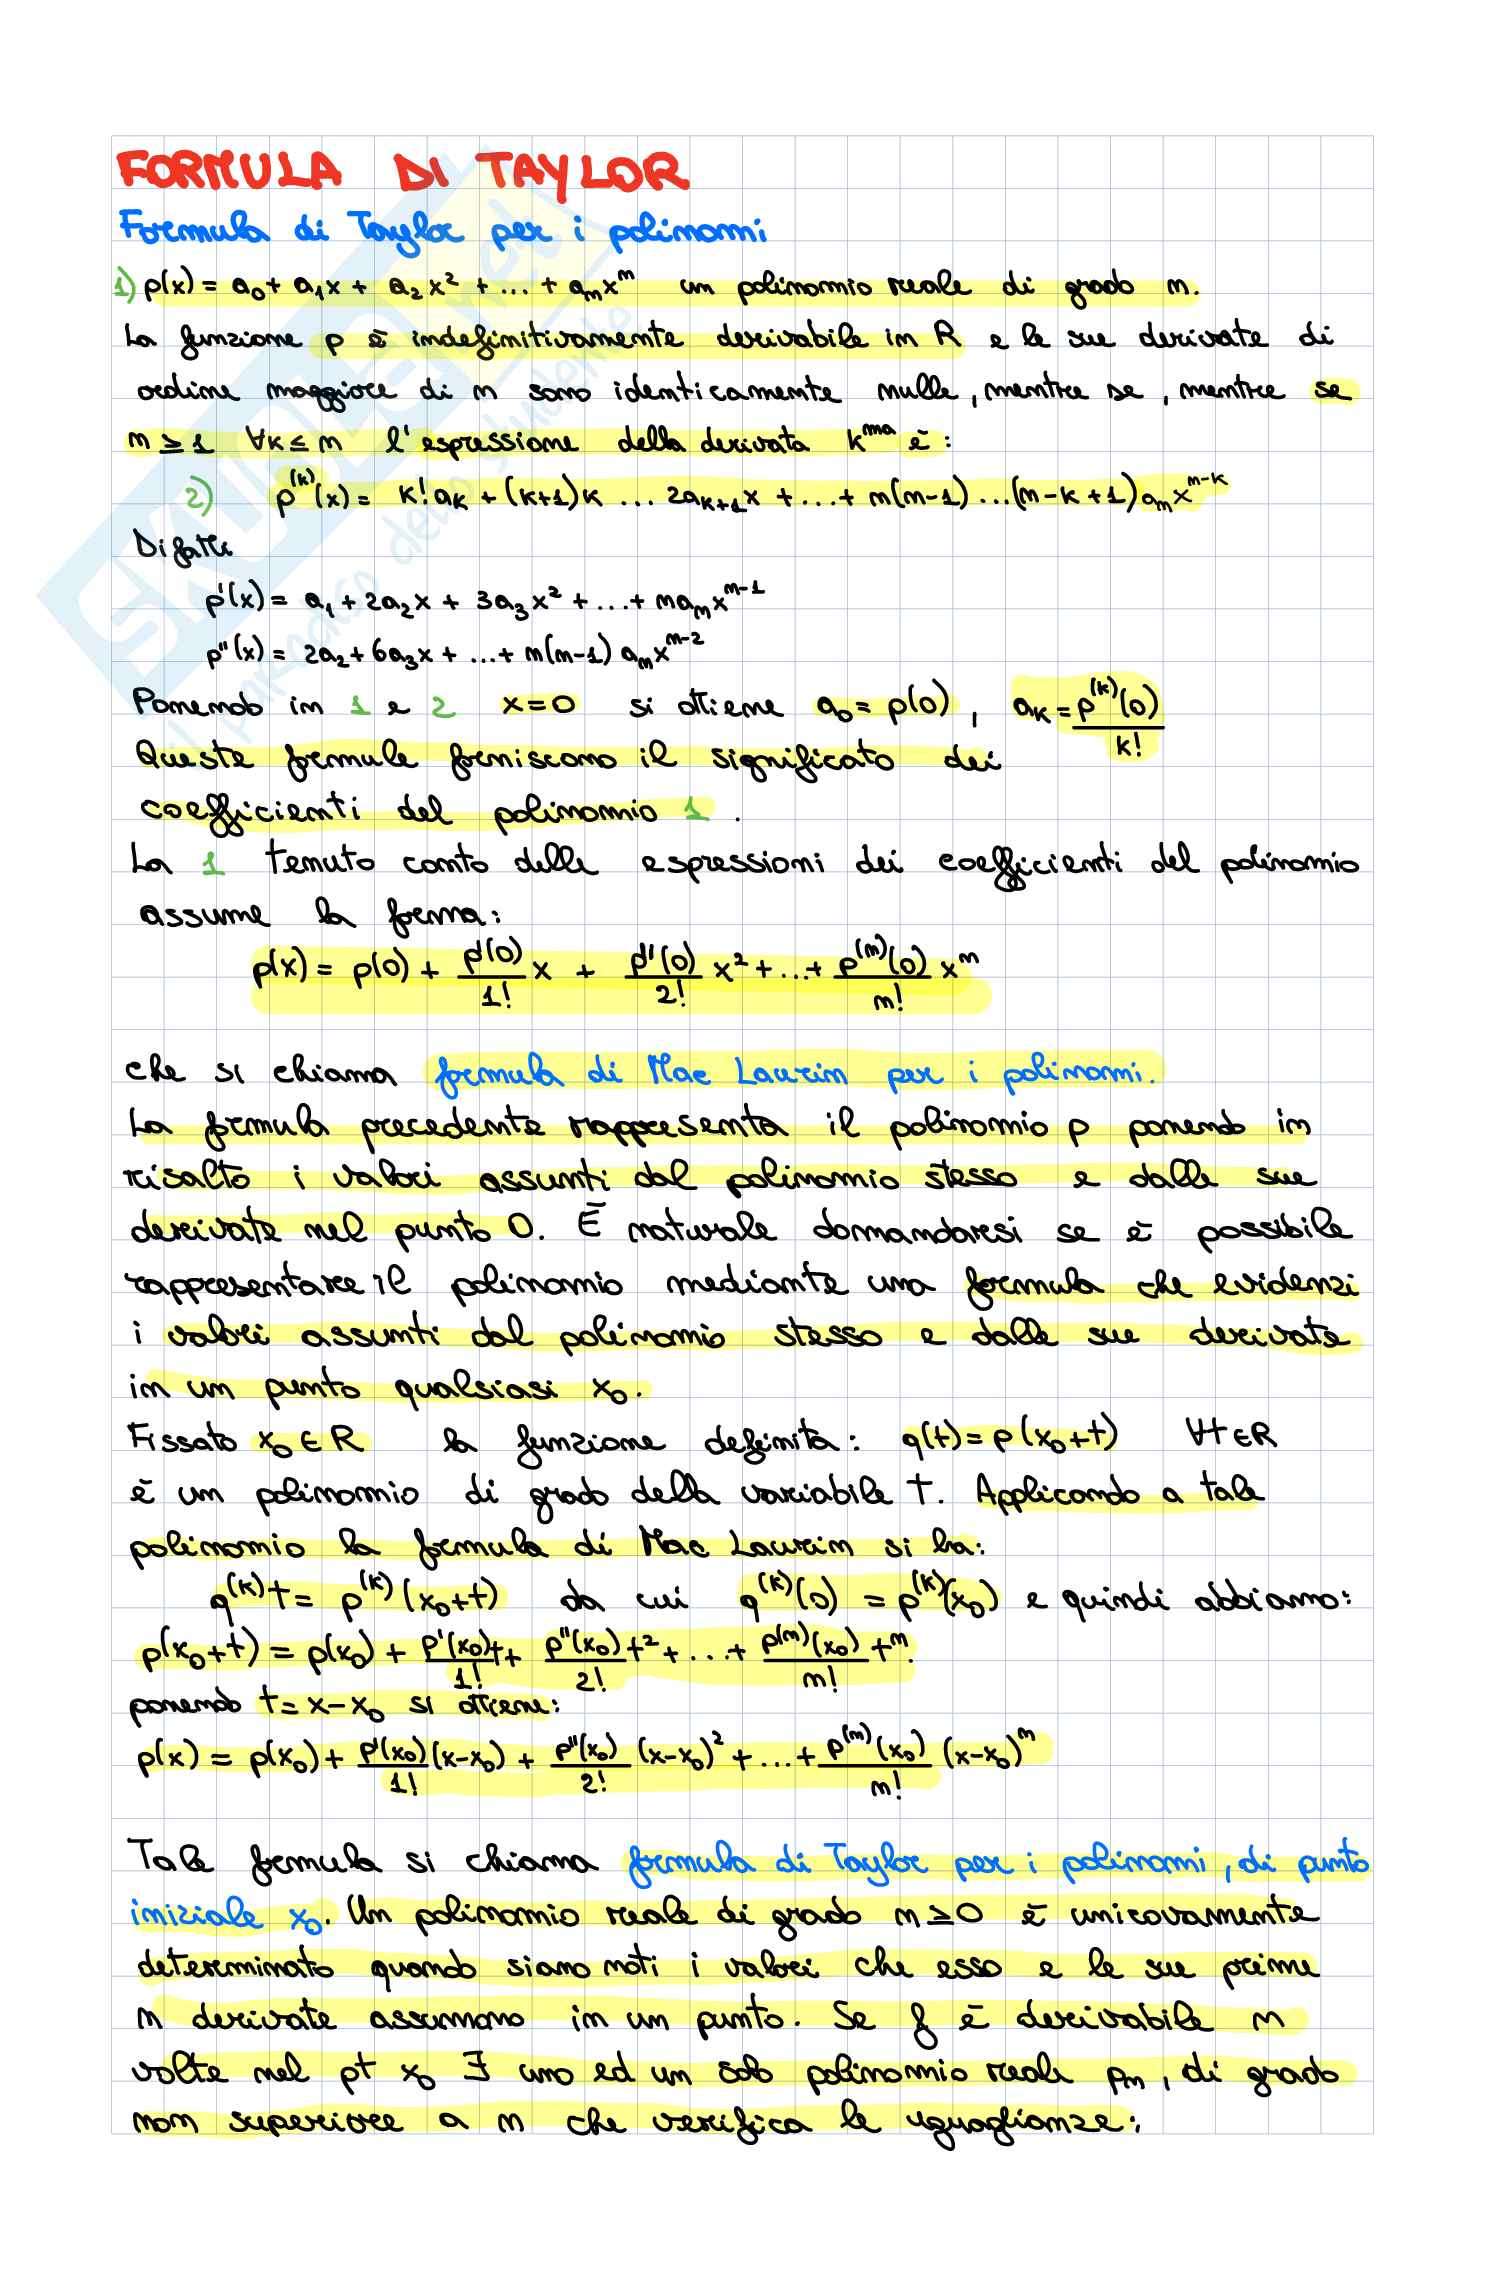 FORMULA DI TAYLOR
Formula di Taylor per i polinomi
1) p(x) = a₀ + a₁x + a₂x² + ... + aₙxⁿ un polinomio reale di grado n.
La funzione p è indefinitivamente derivabile in R e le sue derivate di
ordine maggiore di n sono identicamente nulle, mentre se, mentre se
n ≥ 1 ∀k ≤ n l'espressione della derivata kᵐᵃ è:
2) p⁽ᵏ⁾(x) = k! aₖ + (k+1)k ... 2aₖ₊₁x + ... + n(n-1) ... (n-k+1) aₙxⁿ⁻ᵏ
Difatti
p'(x) = a₁ + 2a₂x + 3a₃x² + ... + naₙxⁿ⁻¹
p''(x) = 2a₂ + 6a₃x + ... + n(n-1) aₙxⁿ⁻²
Ponendo in 1 e 2 x=0 si ottiene a₀ = p(0), aₖ = p⁽ᵏ⁾(0)/k!
Queste formule forniscono il significato dei
coefficienti del polinomio 1.
La 1 tenuto conto delle espressioni dei coefficienti del polinomio
assume la forma:
p(x) = p(0) + p'(0)/1! x + p''(0)/2! x² + ... + p⁽ⁿ⁾(0)/n! xⁿ
che si chiama formula di Mac Laurin per i polinomi.
La formula precedente rappresenta il polinomio p ponendo in
risalto i valori assunti dal polinomio stesso e dalle sue
derivate nel punto 0. È naturale domandarsi se è possibile
rappresentare il polinomio mediante una formula che evidenzi
i valori assunti dal polinomio stesso e dalle sue derivate
in un punto qualsiasi x₀.
Fissato x₀ ∈ R la funzione definita: q(t) = p(x₀+t) ∀t ∈ R
è un polinomio di grado della variabile t. Applicando a tale
polinomio la formula di Mac Laurin si ha:
q⁽ᵏ⁾t = p⁽ᵏ⁾(x₀+t) da cui q⁽ᵏ⁾(0) = p⁽ᵏ⁾(x₀) e quindi abbiamo:
p(x₀+t) = p(x₀) + p'(x₀)/1! t + p''(x₀)/2! t² + ... + p⁽ⁿ⁾(x₀)/n! tⁿ
ponendo t = x-x₀ si ottiene:
p(x) = p(x₀) + p'(x₀)/1! (x-x₀) + p''(x₀)/2! (x-x₀)² + ... + p⁽ⁿ⁾(x₀)/n! (x-x₀)ⁿ
Tale formula si chiama formula di Taylor per i polinomi, di punto
iniziale x₀. Un polinomio reale di grado n ≥ 0 è univocamente
determinato quando siano noti i valori che esso e le sue prime
n derivate assumono in un punto. Se f è derivabile n
volte nel pt x₀ ∃ uno ed un solo polinomio reale pₙ, di grado
non superiore a n che verifica le uguaglianze: